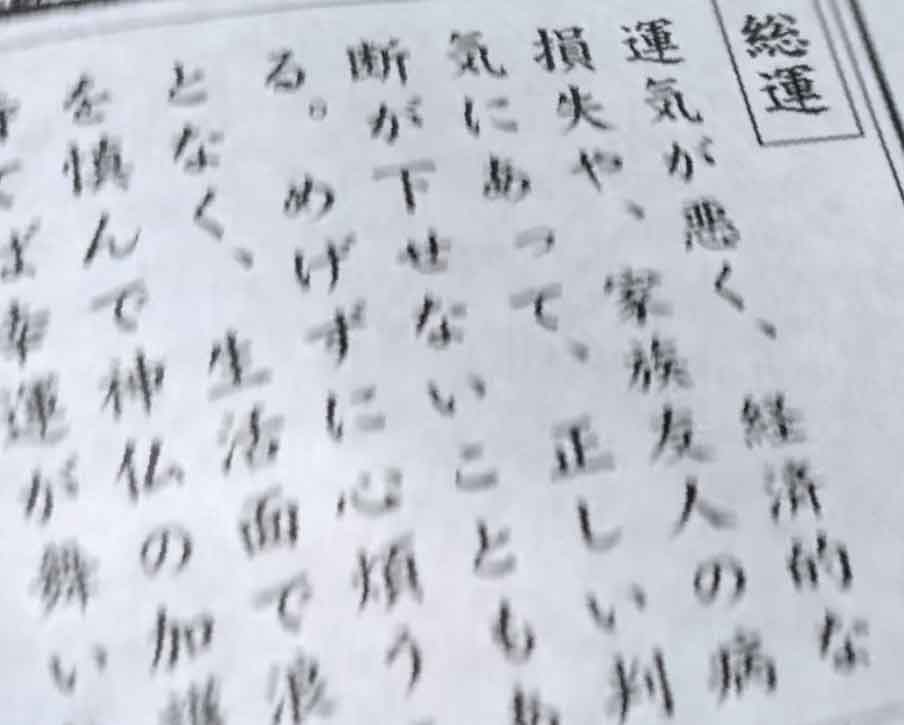 総運
運気が悪く、経済的な
損失や、家族友人の病
気にあって、正しい判
断が下せないことも
る。めげずに心煩う
となく、生活面で浪
を慎んで神仏の加護
ば幸運が舞い